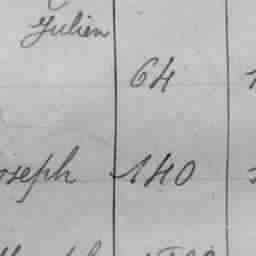 Julien
64
oseph 140